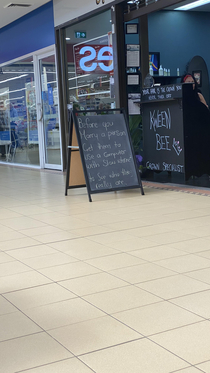 es
KWEEN
BEE
CROWN SPECIALIST
Before you
marry a person
Get them to
Use a Computer
with Slow internet
to See who they
really are